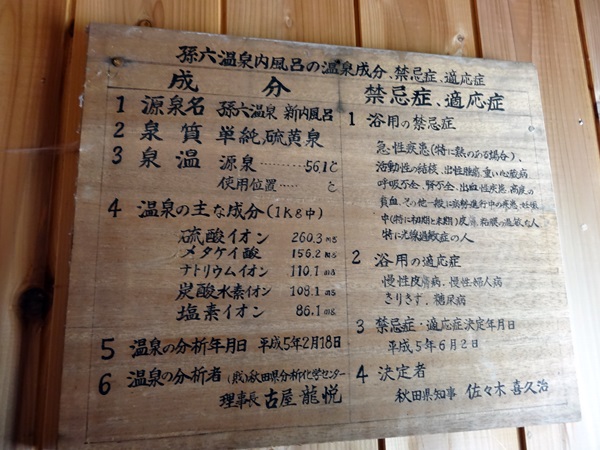 孫六温泉内風呂の温泉成分、禁忌症、適応症
成分
1 源泉名 孫六温泉 新内風呂
2 泉質 単純硫黄泉
3 泉温 源泉………56.1℃
使用位置…… ℃
4 温泉の主な成分(1kg中)
硫酸イオン 260.3mg
メタケイ酸 156.2mg
ナトリウムイオン 110.1mg
炭酸水素イオン 108.1mg
塩素イオン 86.1mg
5 温泉の分析年月日 平成5年2月18日
6 温泉の分析者 (財)秋田県分析化学センター
理事長 古屋龍悦
禁忌症、適応症
1 浴用の禁忌症
急性疾患(特に熱のある場合)、
活動性の結核、悪性腫瘍、重い心臓病
呼吸不全、腎不全、出血性疾患、高度の
貧血、その他一般に病勢進行中の疾患、妊娠
中(特に初期と末期)皮膚、粘膜の過敏な人
特に光線過敏症の人
2 浴用の適応症
慢性皮膚病、慢性婦人病
きりきず、糖尿病
3 禁忌症・適応症決定年月日
平成5年6月2日
4 決定者
秋田県知事 佐々木喜久治